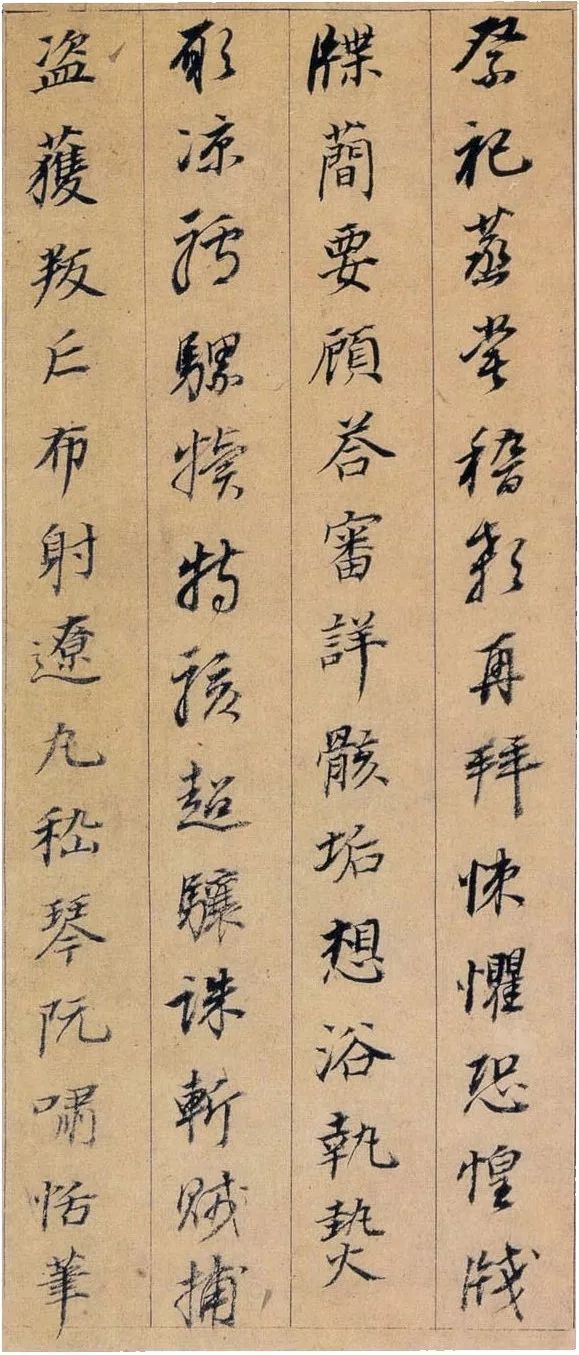 祭祀蒸甞稽顙再拜悚懼恐惶牋
牒蕳要顧荅審詳骸垢想浴執熱
願凉驢騾犢特駭超驤誅斬賊捕
盗獲叛亡布射遼丸嵇琴阮嘯恬筆